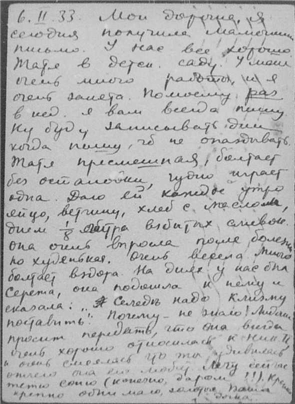 6. II. 33. Мои дорогие, я
сегодня получила Мамочкино
письмо. У нас все хорошо
Натя в детск. саду. У меня
очень много работы, и я
очень занята. Помоему, раз
в нед. я вам всегда пишу
Ну буду записывать дни
когда пишу, чтоб не опаздывать.
Натя пресмешная, болтает
без остановки, чудно играет
одна. Даю ей каждое утро
яйцо, ветчину, хлеб с маслом,
днем 1/8 литра взбитых сливок.
она очень выросла после болезни
но худенькая. Очень весела, много
болтает вздора. На днях у нас был
Сережа, она подошла к нему и
сказала: „Селедке надо клизму
поставить". Почему - не знаю!
просит передать, что она всегда
очень хорошо относилась к
и очень смеялась
отчего она его любит. Лечу
тетю Соню (конечно, даром!!).
крепко обнимаю, целую Ваша